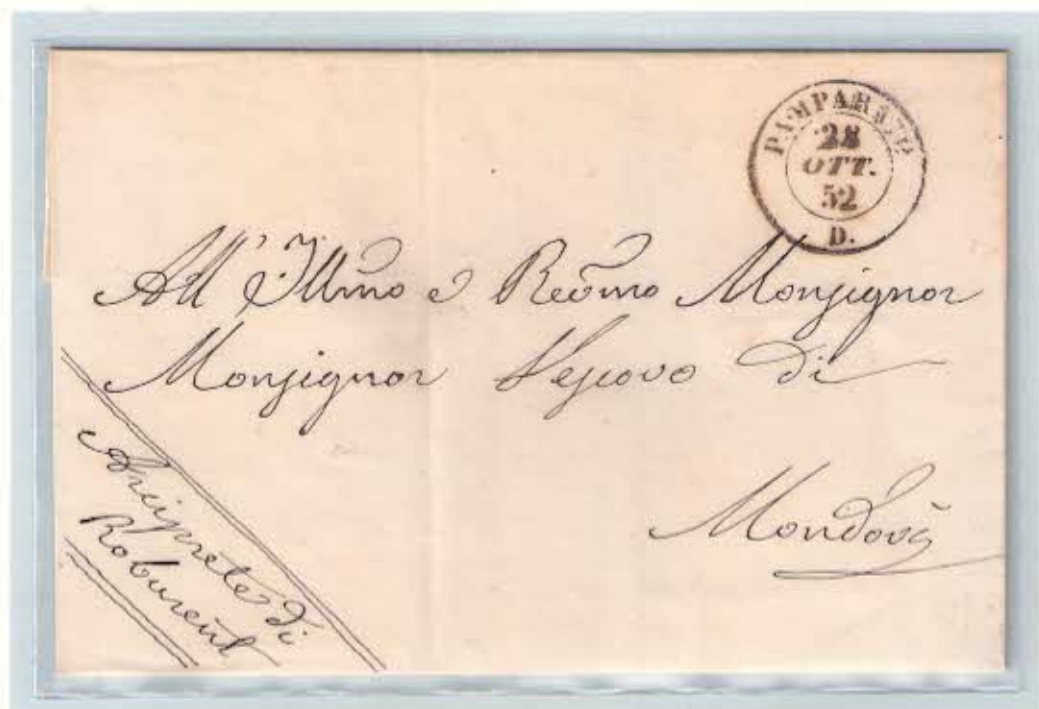 PAMPARATO
28
OTT.
52
D.
All' Illmo e Revmo Monsignor
Monsignor Vescovo di
Mondovì
Arciprete di
Roburent